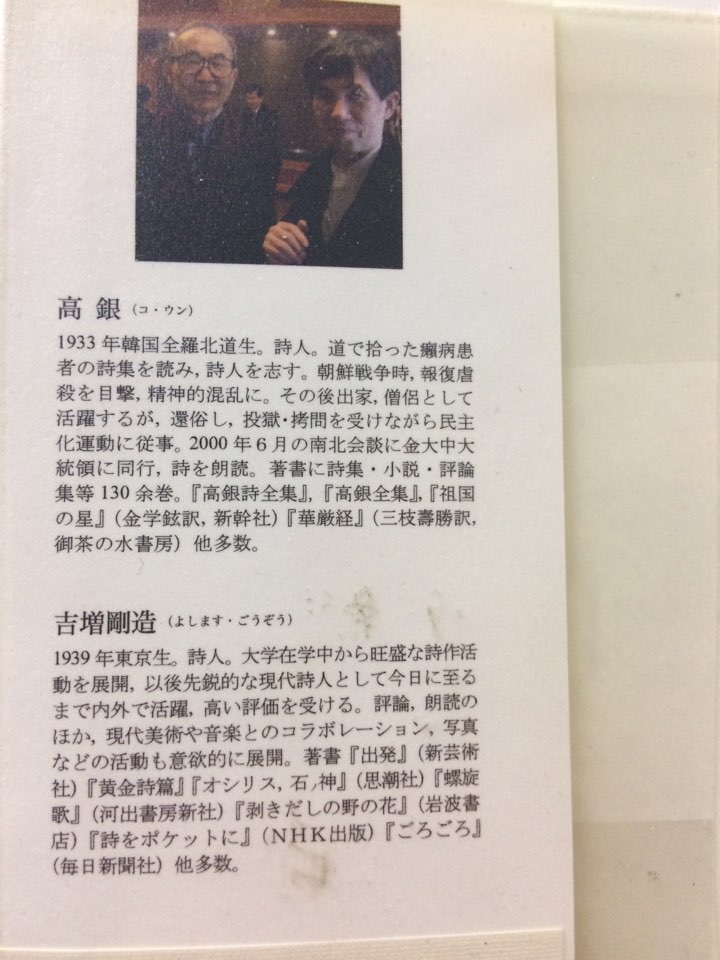 高 銀（コ・ウン）
1933 年韓国全羅北道生。詩人。道で拾った癩病患
者の詩集を読み，詩人を志す。朝鮮戦争時，報復虐
殺を目撃，精神的混乱に。その後出家，僧侶として
活躍するが，還俗し，投獄・拷問を受けながら民主
化運動に従事。2000 年 6 月の南北会談に金大中大
統領に同行，詩を朗読。著書に詩集・小説・評論
集等 130 余巻。『高銀詩全集』，『高銀全集』，『祖国
の星』（金学鉉訳，新幹社）『華厳経』（三枝壽勝訳，
御茶の水書房）他多数。
吉増剛造（よします・ごうぞう）
1939 年東京生。詩人。大学在学中から旺盛な詩作活
動を展開，以後先鋭的な現代詩人として今日に至る
まで内外で活躍，高い評価を受ける。評論，朗読の
ほか，現代美術や音楽とのコラボレーション，写真
などの活動も意欲的に展開。著書『出発』（新芸術
社）『黄金詩篇』『オシリス，石ノ神』（思潮社）『螺旋
歌』（河出書房新社）『剥きだしの野の花』（岩波書
店）『詩をポケットに』（NHK出版）『ごろごろ』
（毎日新聞社）他多数。